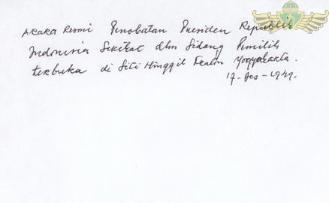 Acara Resmi Penobatan Presiden Republik
Indonesia Serikat dlm Sidang Pemilih
terbuka di Siti Hinggil Keraton Yogyakarta.
17 - Des - 1949.